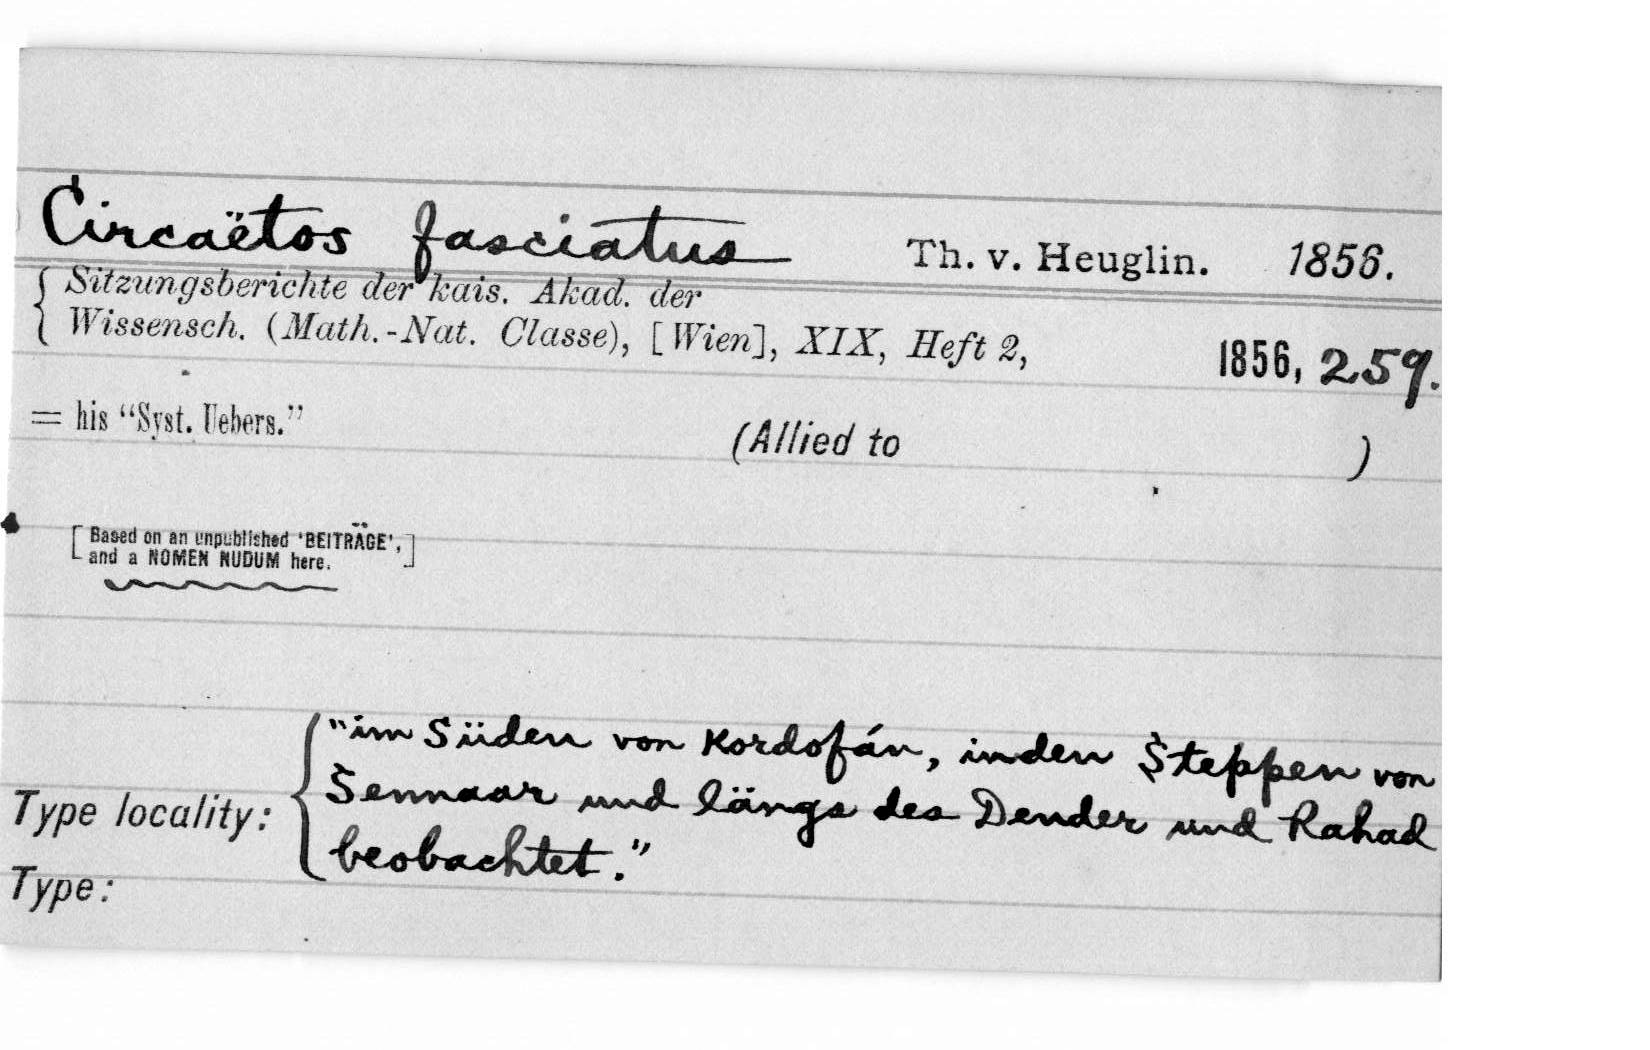 Circaëtos fasciatus Th. v. Heuglin. 1856.
{ Sitzungsberichte der kais. Akad. der
Wissensch. (Math.-Nat. Classe), [Wien], XIX, Heft 2, 1856, 259.
= his “Syst. Uebers.”
(Allied to )
[ Based on an unpublished ‘BEITRÄGE’,
and a NOMEN NUDUM here. ]
"im Süden von Kordofán, in den Steppen von
Sennaar und längs des Dender und Rahad
Type locality:
beobachtet."
Type: